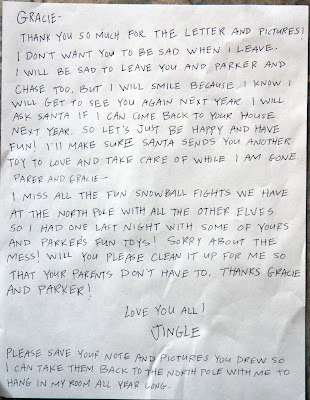 GRACIE-
THANK YOU SO MUCH FOR THE LETTER AND PICTURES!
I DON'T WANT YOU TO BE SAD WHEN I LEAVE.
I WILL BE SAD TO LEAVE YOU AND PARKER AND
CHASE TOO, BUT I WILL SMILE BECAUSE I KNOW I
WILL GET TO SEE YOU AGAIN NEXT YEAR. I WILL
ASK SANTA IF I CAN COME BACK TO YOUR HOUSE
NEXT YEAR. SO LET'S JUST BE HAPPY AND HAVE
FUN! I'LL MAKE SURE SANTA SENDS YOU ANOTHER
TOY TO LOVE AND TAKE CARE OF WHILE I AM GONE.
PARER AND GRACIE-
I MISS ALL THE FUN SNOWBALL FIGHTS WE HAVE
AT THE NORTH POLE WITH ALL THE OTHER ELVES
SO I HAD ONE LAST NIGHT WITH SOME OF YOURS
AND PARKER'S FUN TOYS! SORRY ABOUT THE
MESS! WILL YOU PLEASE CLEAN IT UP FOR ME SO
THAT YOUR PARENTS DON'T HAVE TO. THANKS GRACIE
AND PARKER!
LOVE YOU ALL!
JINGLE
PLEASE SAVE YOUR NOTE AND PICTURES YOU DREW SO
I CAN TAKE THEM BACK TO THE NORTH POLE WITH ME TO
HANG IN MY ROOM ALL YEAR LONG.